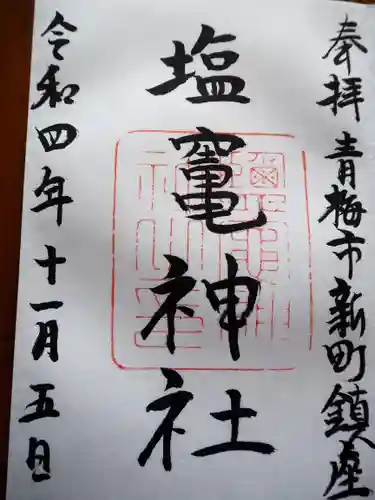 奉拝 青梅市新町鎮座
塩竃神社
令和四年十一月五日